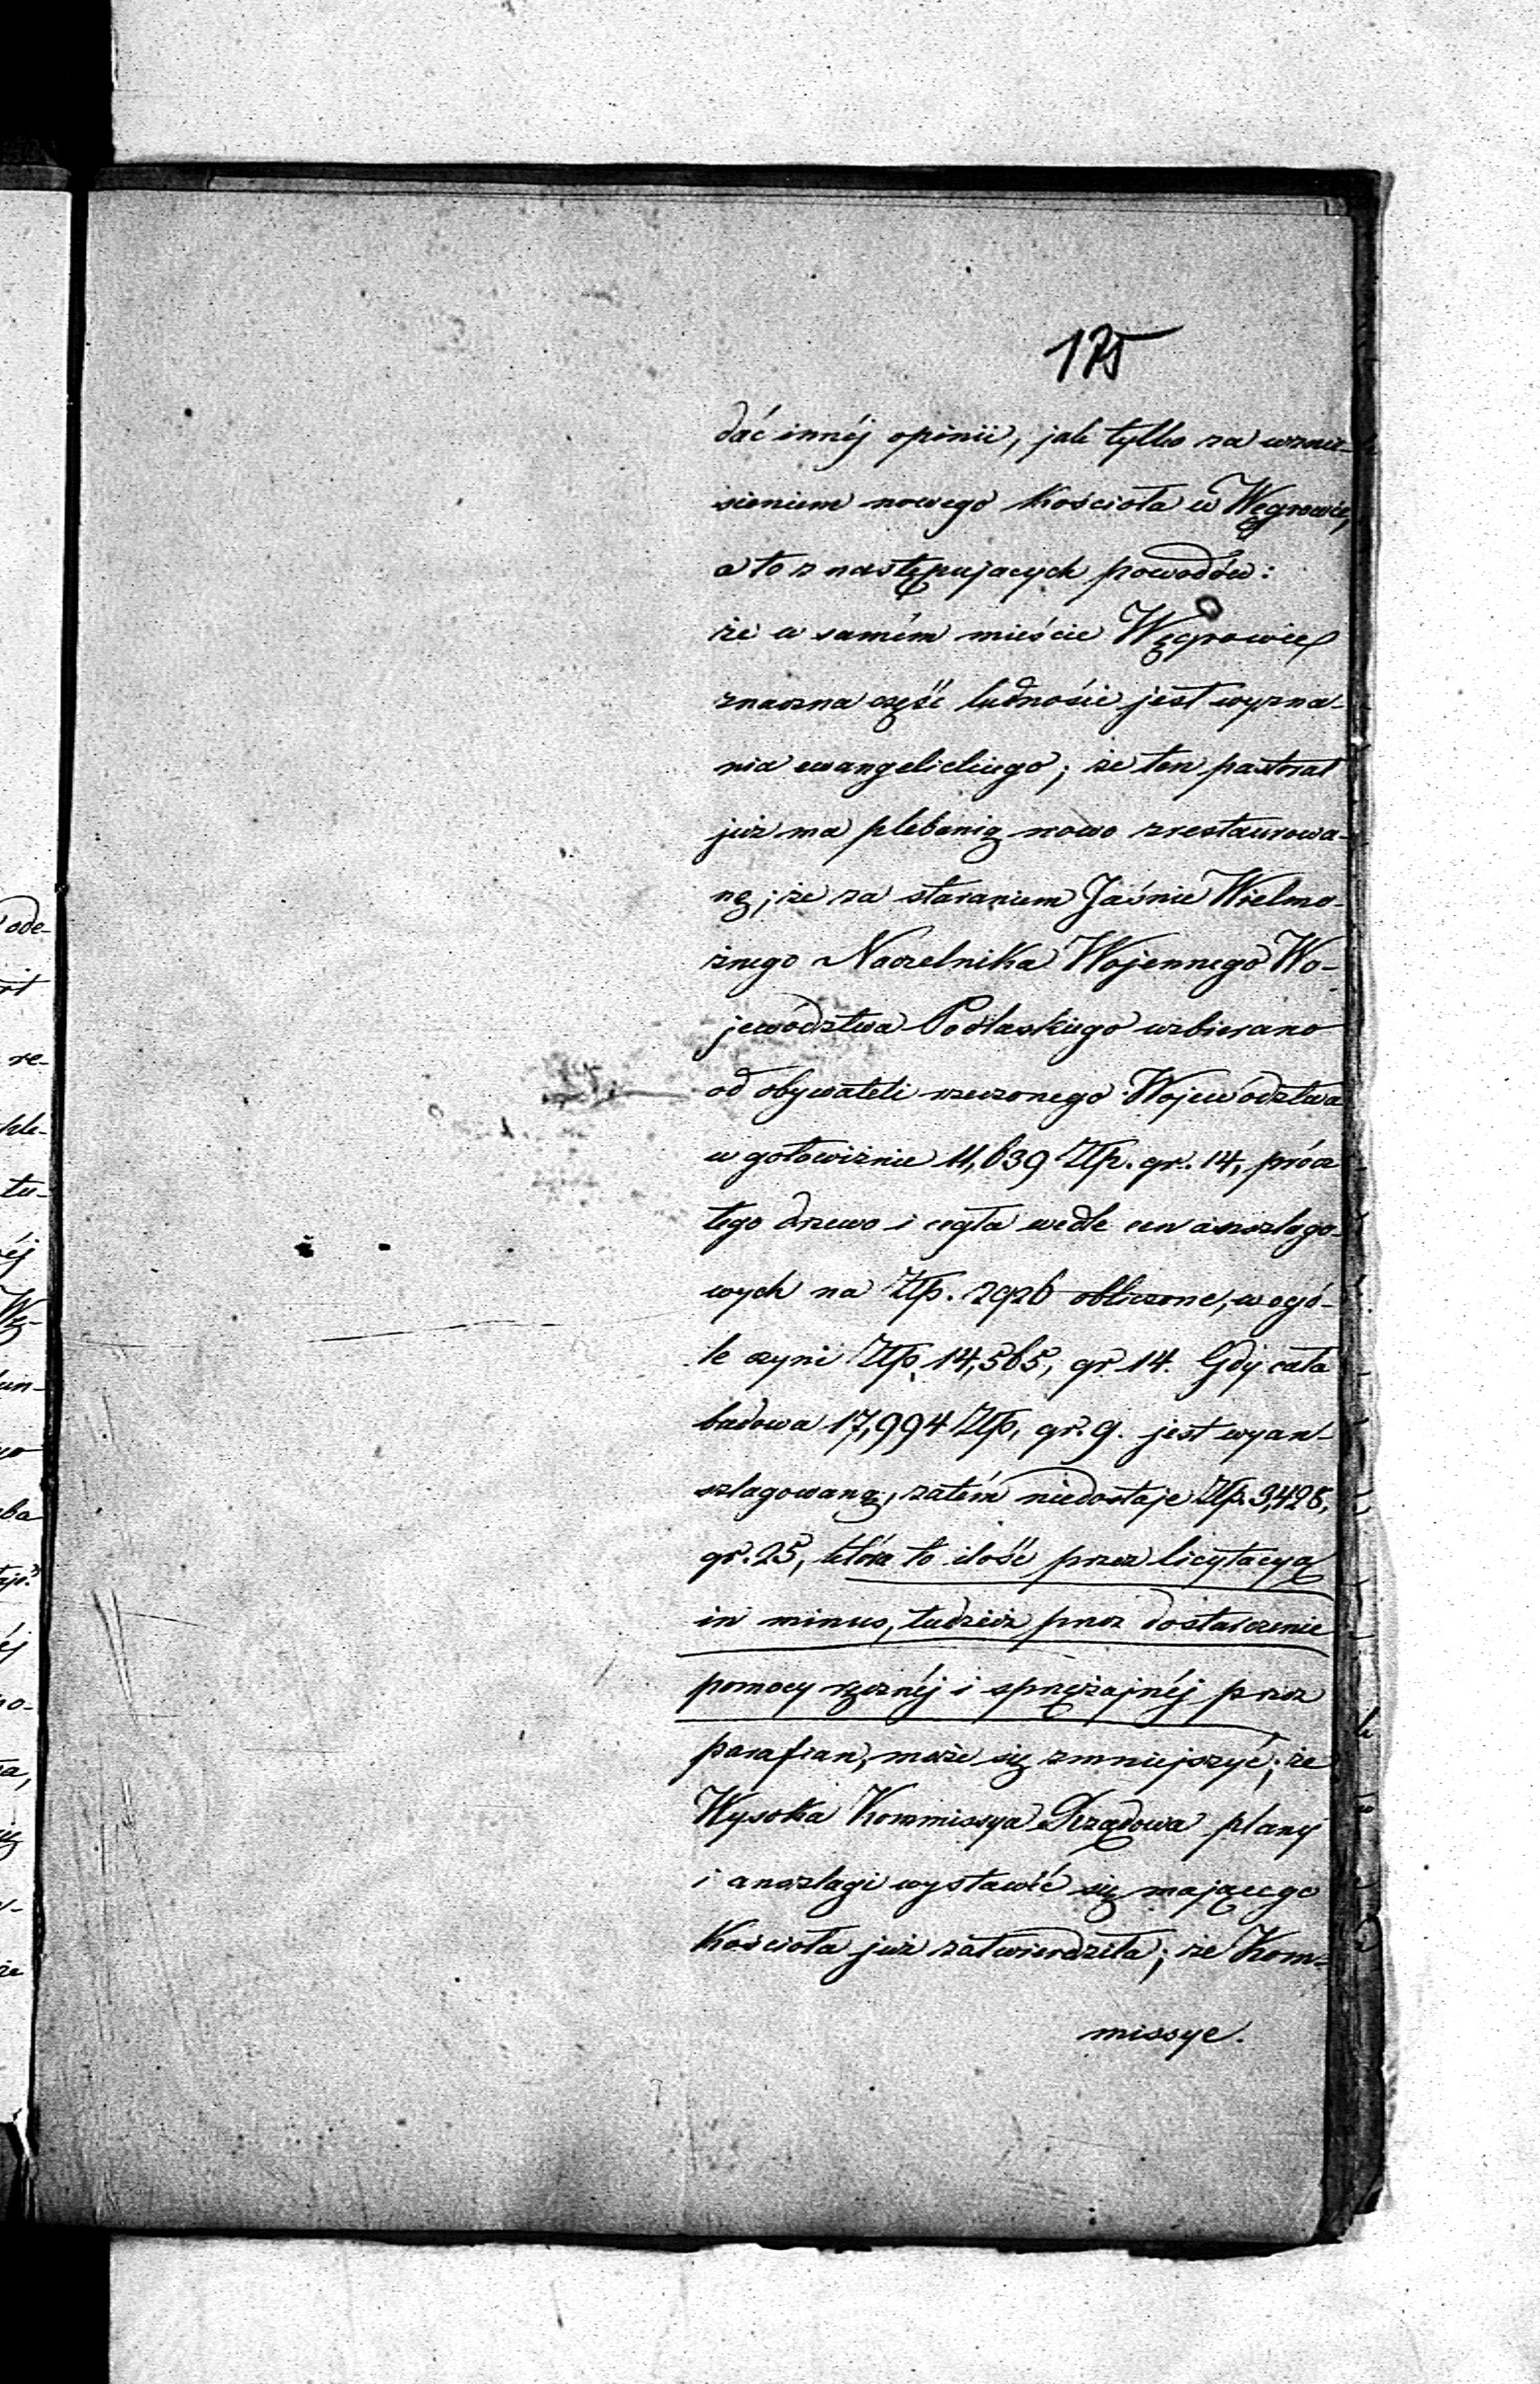 175
dać innéj opinii, jak tylko za wznie-
sieniem nowego Kościoła w Węgrowie,
a to z następujących powodów:
że w samém mieście Węgrowie
znaczna część ludności jest wyzna-
nia ewangelickiego; że ten pastorat
już ma plebanię nowo zrestaurowa-
ną; że za staraniem Jaśnie Wielmo-
żnego Naczelnika Wojennego Wo-
jewództwa Podlaskiego uzbierano
od obywateli rzeczonego Województwa
w gotowiźnie 11,639 Złp. gr. 14, prócz
tego drzewo i cegła wedle cen anszlago-
wych na Złp. 2926 obliczone, w ogó-
le czyni Złp. 14,565, gr. 14. Gdy cała
budowa 17,994 Złp. gr. 9. jest wyan-
szlagowaną, zatém niedostaje Złp. 3,428,
gr. 25, którato ilość przez licytacyą
in minus, tudzież przez dostarczenie
pomocy ręcznéj i sprzężajnéj przez
parafian, może się zmniejszyć; że
Wysoka Kommissya Rządowa plany
i anszlagi wystawić się mającego
Kościoła już zatwierdziła; że Kom-
missye.
ode-
rt
re-
ple-
tu-
éj
Wę-
ba
éj